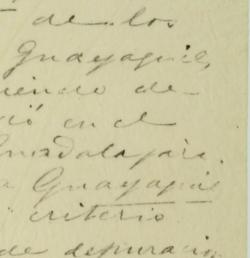 de los
Guayaquil,
de-
en el
Guadalajara.
a Guayaquil
criterio
de depuración